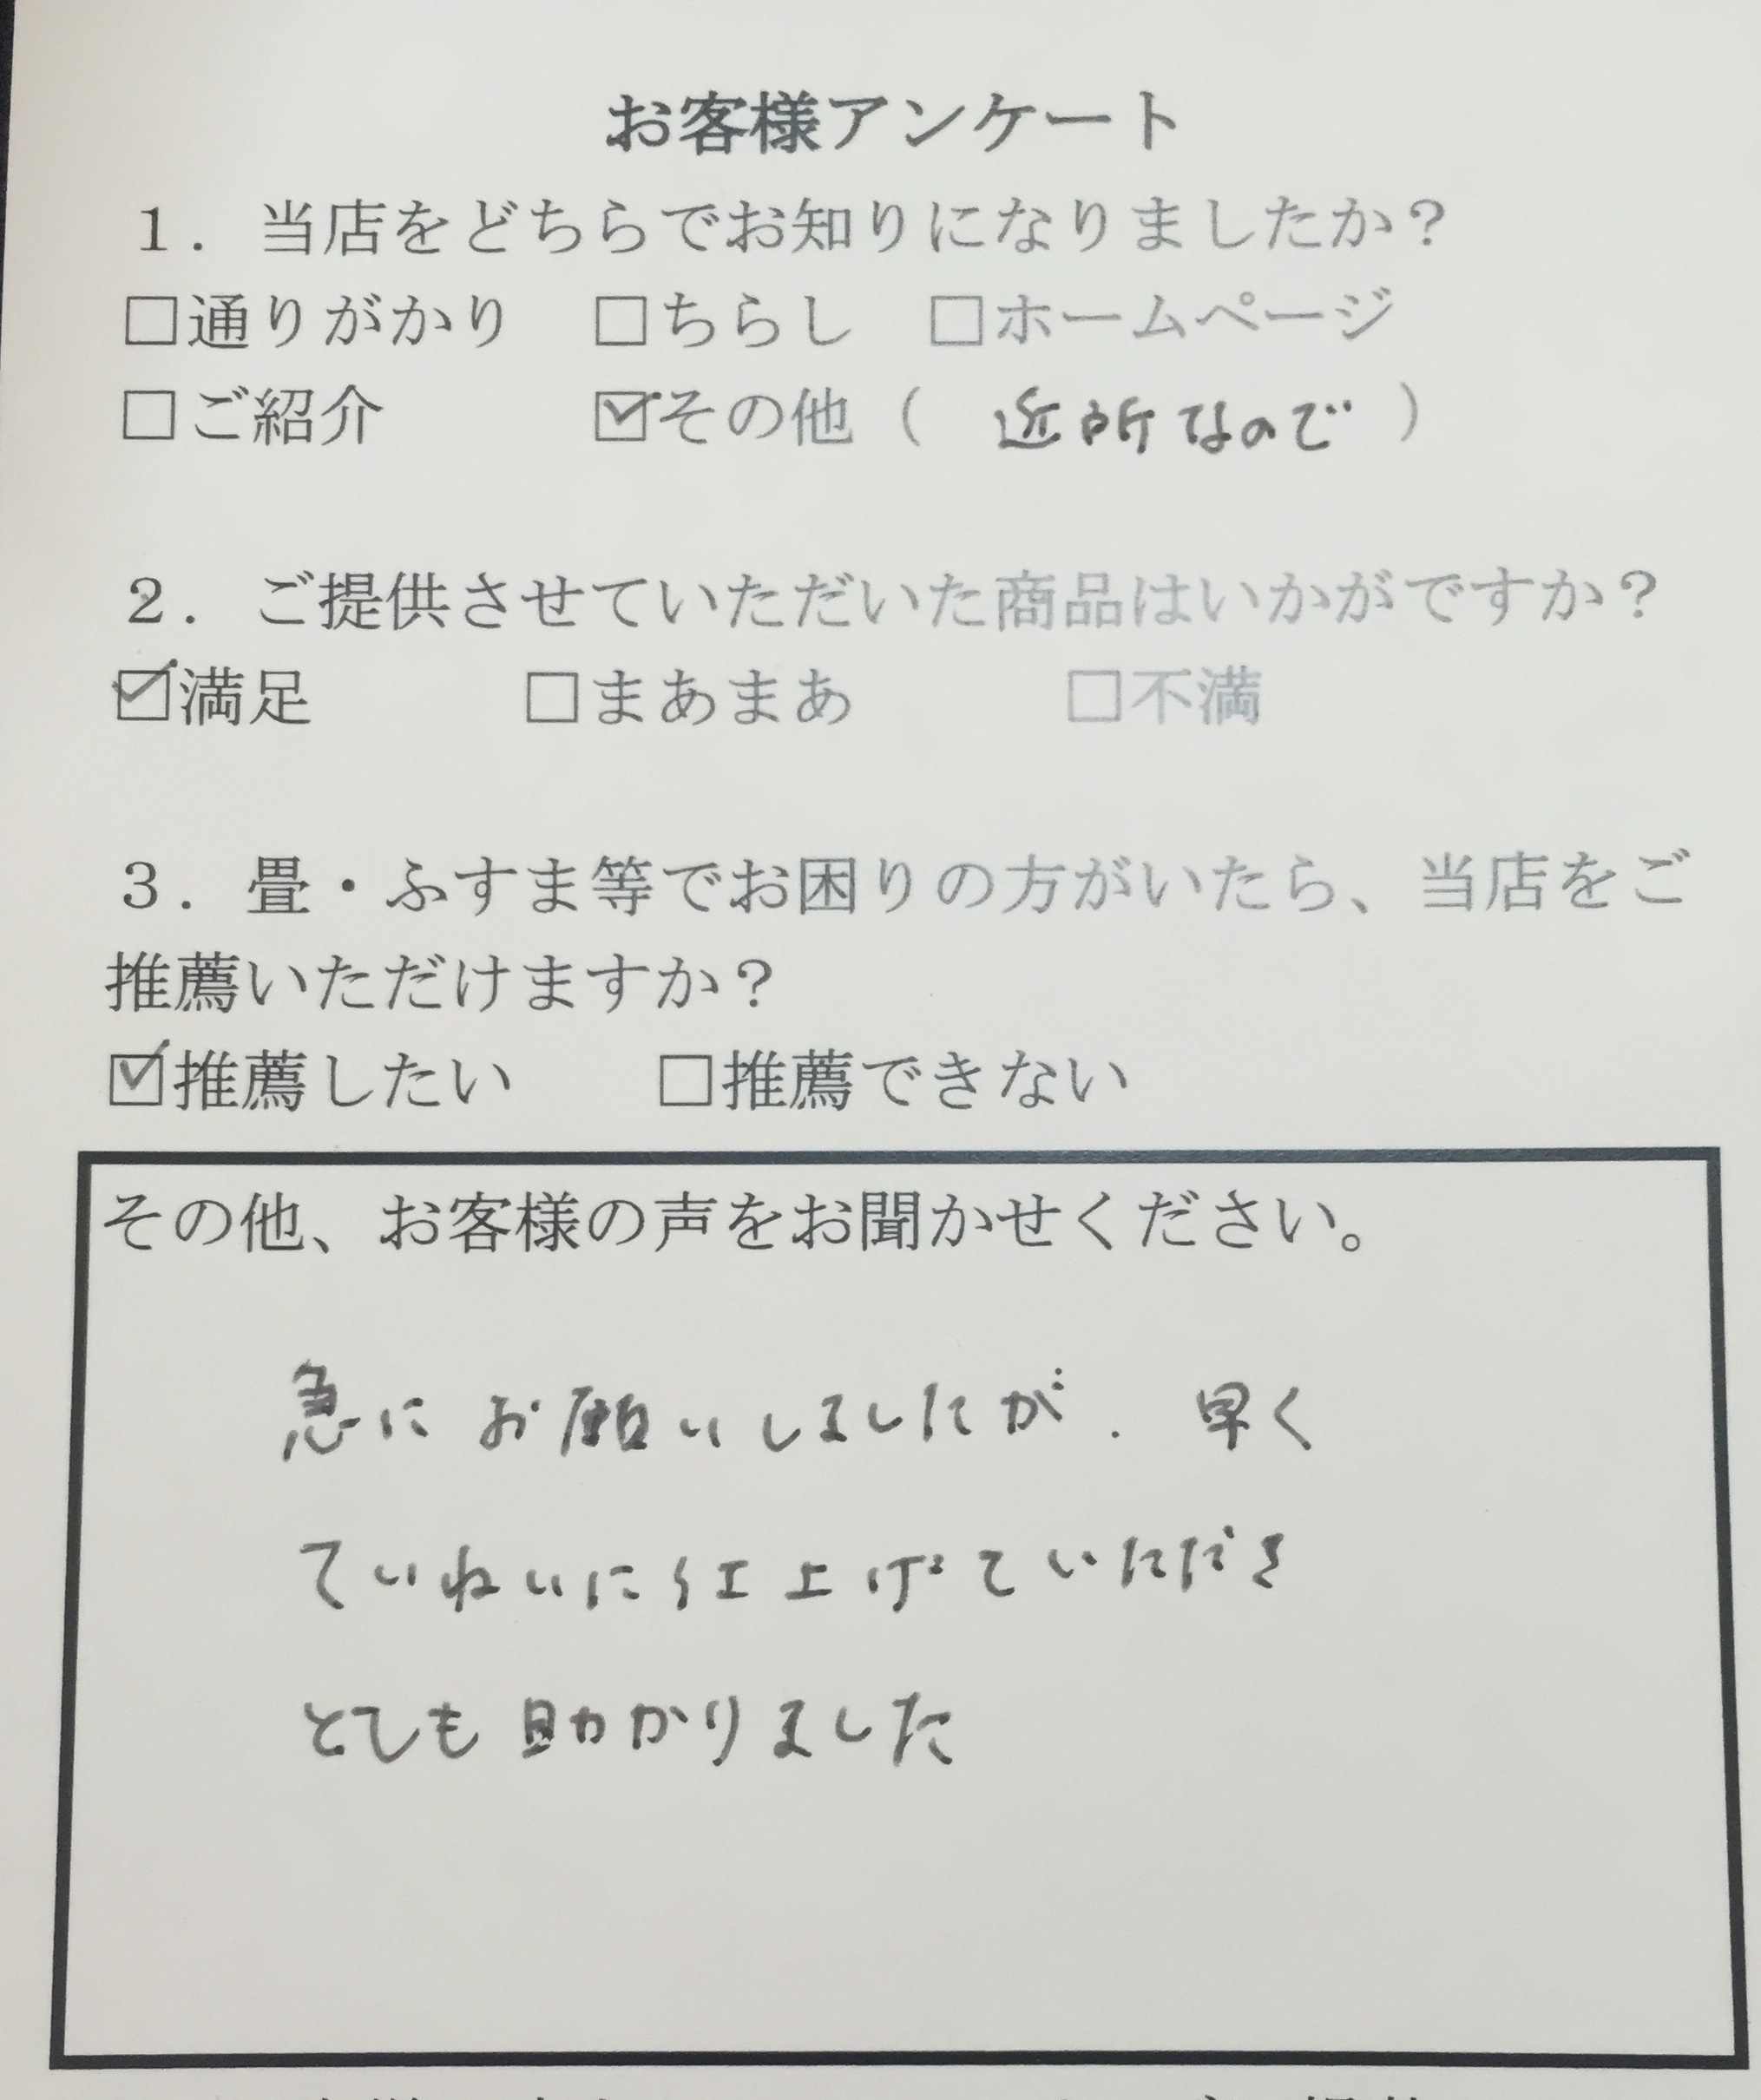 お客様アンケート
１．当店をどちらでお知りになりましたか？
□通りがかり　□ちらし　□ホームページ
□ご紹介　☑その他（　近所なので　）
２．ご提供させていただいた商品はいかがですか？
☑満足　□まあまあ　□不満
３．畳・ふすま等でお困りの方がいたら、当店をご
推薦いただけますか？
☑推薦したい　□推薦できない
その他、お客様の声をお聞かせください。
急にお願いしましたが、早く
ていねいに仕上げていただき
とても助かりました